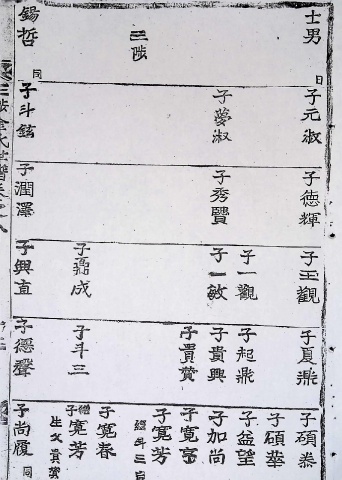 士男
三陟
錫哲
同
子元淑
子夢淑
子斗鉉
子德輝
子秀賢
子潤澤
子玉觀
子一觀
子一敏
子成
子興直
子夏鼎
子起鼎
子貴興
子貫贊
子斗三
子德聲
子碩泰
子碩華
子益望
子加尚
子寬亨
子寬芳
子寬春
繼子寬芳
生父貫贊
子尚履
同